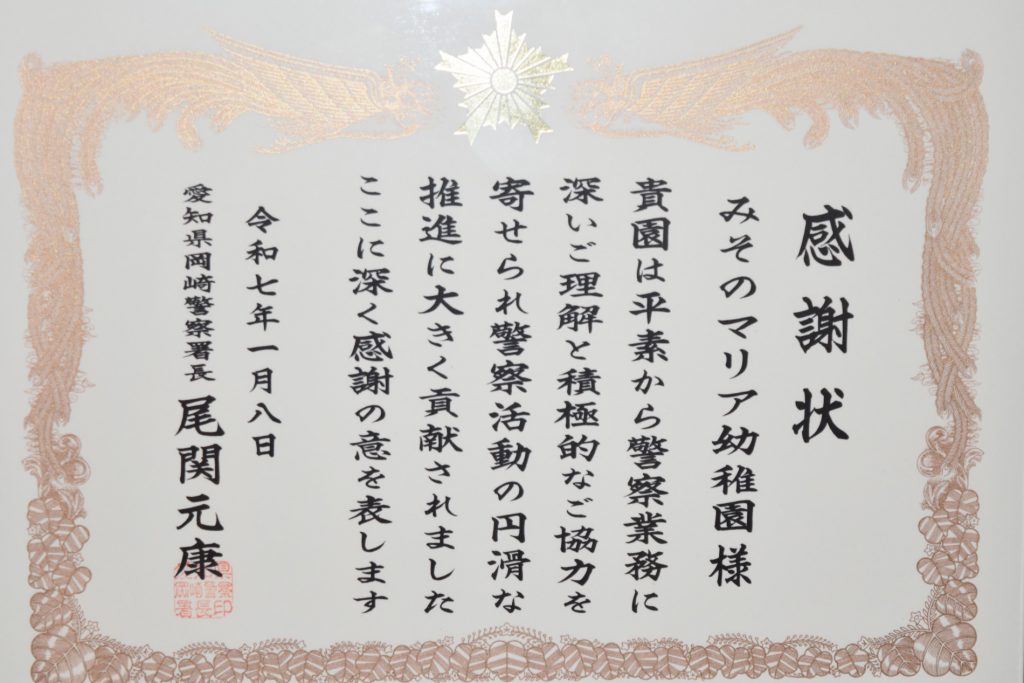 感謝状
みそのマリア幼稚園様
貴園は平素から警察業務に
深いご理解と積極的なご協力を
寄せられ警察活動の円滑な
推進に大きく貢献されました
ここに深く感謝の意を表します
令和七年一月八日
愛知県岡崎警察署長 尾関元康